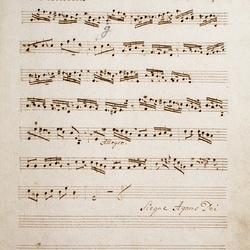 Allegro
Siegue Agnus Dei